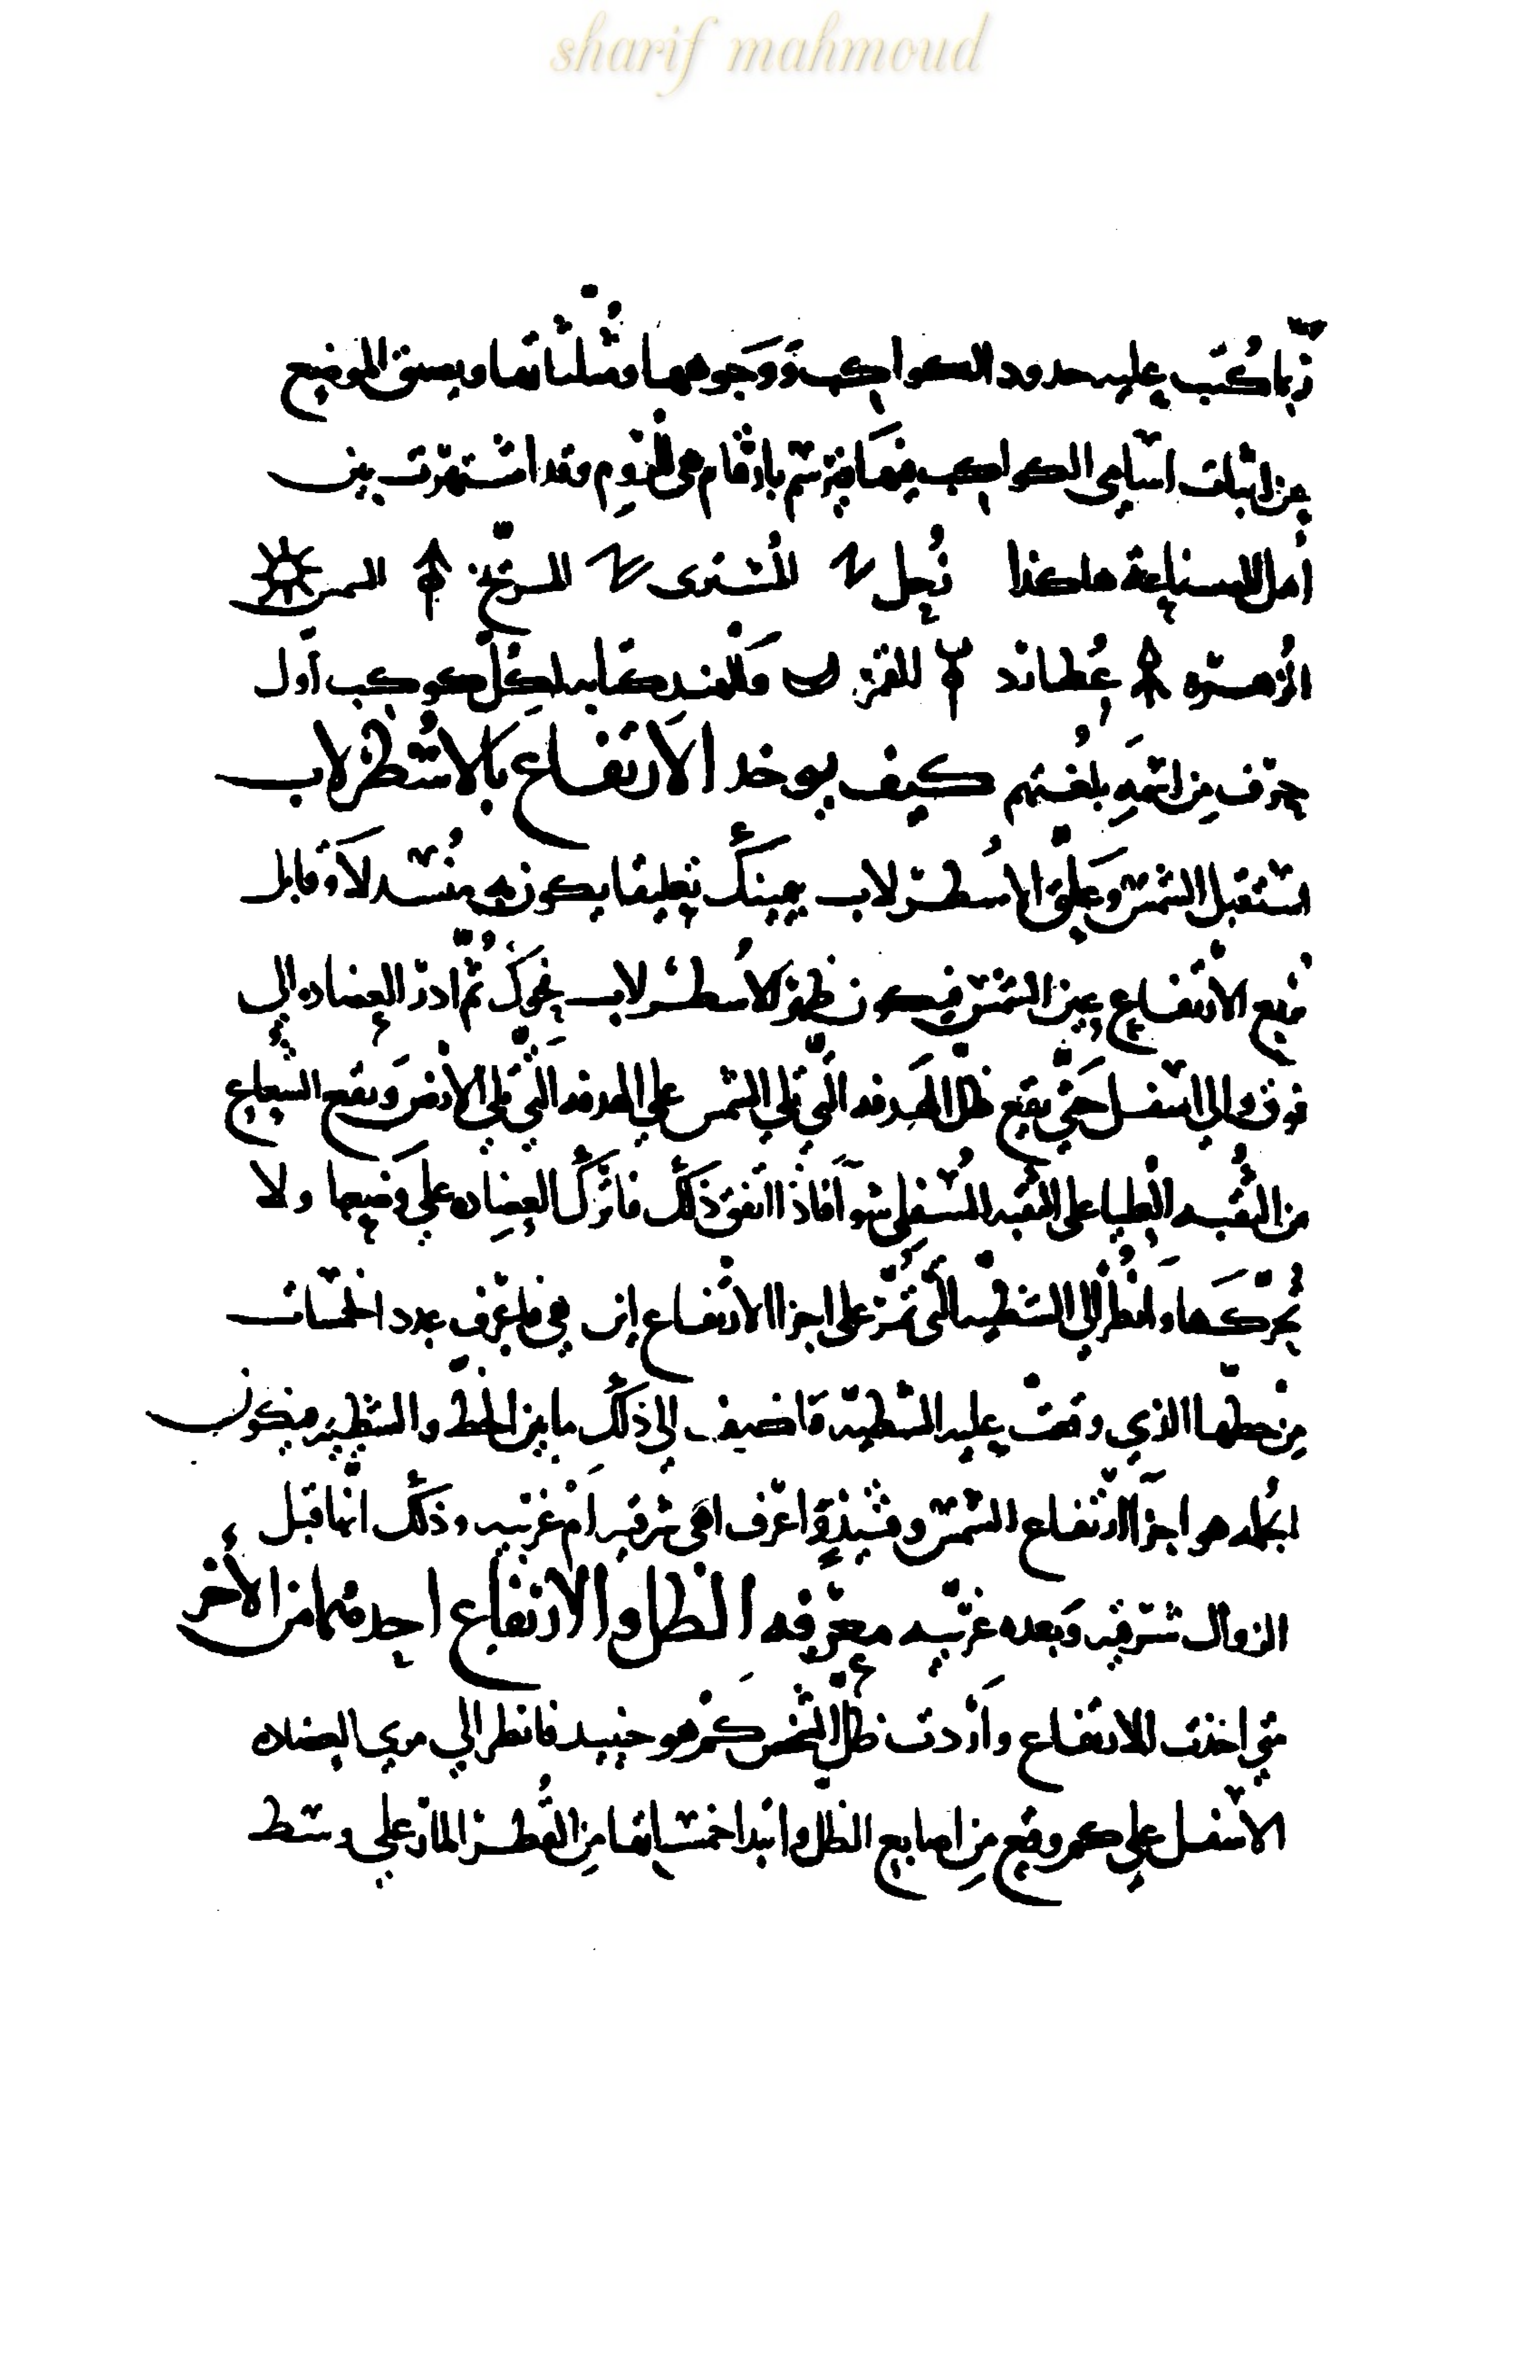 sharif mahmoud
ربما كتب عليه حدود الكواكب ووجوهها ومثلثاتها ويضيق الموضع
عن اثبات اسامي الكواكب فيها فترسم بارقام هي للروم وقد اشتهرت بين
أهل الصناعة هاكذا زُحل المُشترى المرّيخ الشمس
الزُهرة عُطارد القمر والهند كتابه لكل كوكب أول
حرف من اسمه بلغتهم كيف يوخد الارتفاع بالاسُطرلاب
تستقبل الشمس وعلّق الاسُطرلاب بيمينك تعليقا يكون به منُسدلا وقابل
بربع الارتفاع عين الشمس فيكون ظهر الاسُطرلاب نحوك ثم ادر العضاده الي
فوق والي اسفل حتّي يقع ظل الهدفه الّتي تلي الشمس علي الهدفه الّتي تلي الأرض ويقع الشعاع
من الثُقبه العُليا علي الثقبه السُفلي سوآ فاذا اتفق ذلك فاترك العضاده علي وضعها ولا
تحرّكها وانظر الي الشظيّه الّتي تمُرّ علي اجزا الارتفاع اين هي فاعرف عدد الخمسات
من خطّها الذي وقعت عليه الشظيّه فاضيف الي ذلك ما بين الخط والشظيّه فيكون
الجُمله هو اجزآ ارتفاع الشمس وقتيذٍ واعرف اهي شرقيه ام غربيه وذلك انّها قبل
الزوال شرقيّه وبعده غربيّه معرفه الظل والارتفاع احدهما من الأخر
متي اخذت الارتفاع واردت ظلّ الشخص كم هو حينيد فانظر الي مري العضاده
الاسفل علي كم وقع من اصابع الظل وابتدا خمساتها من القُطر المارّ علي وسط